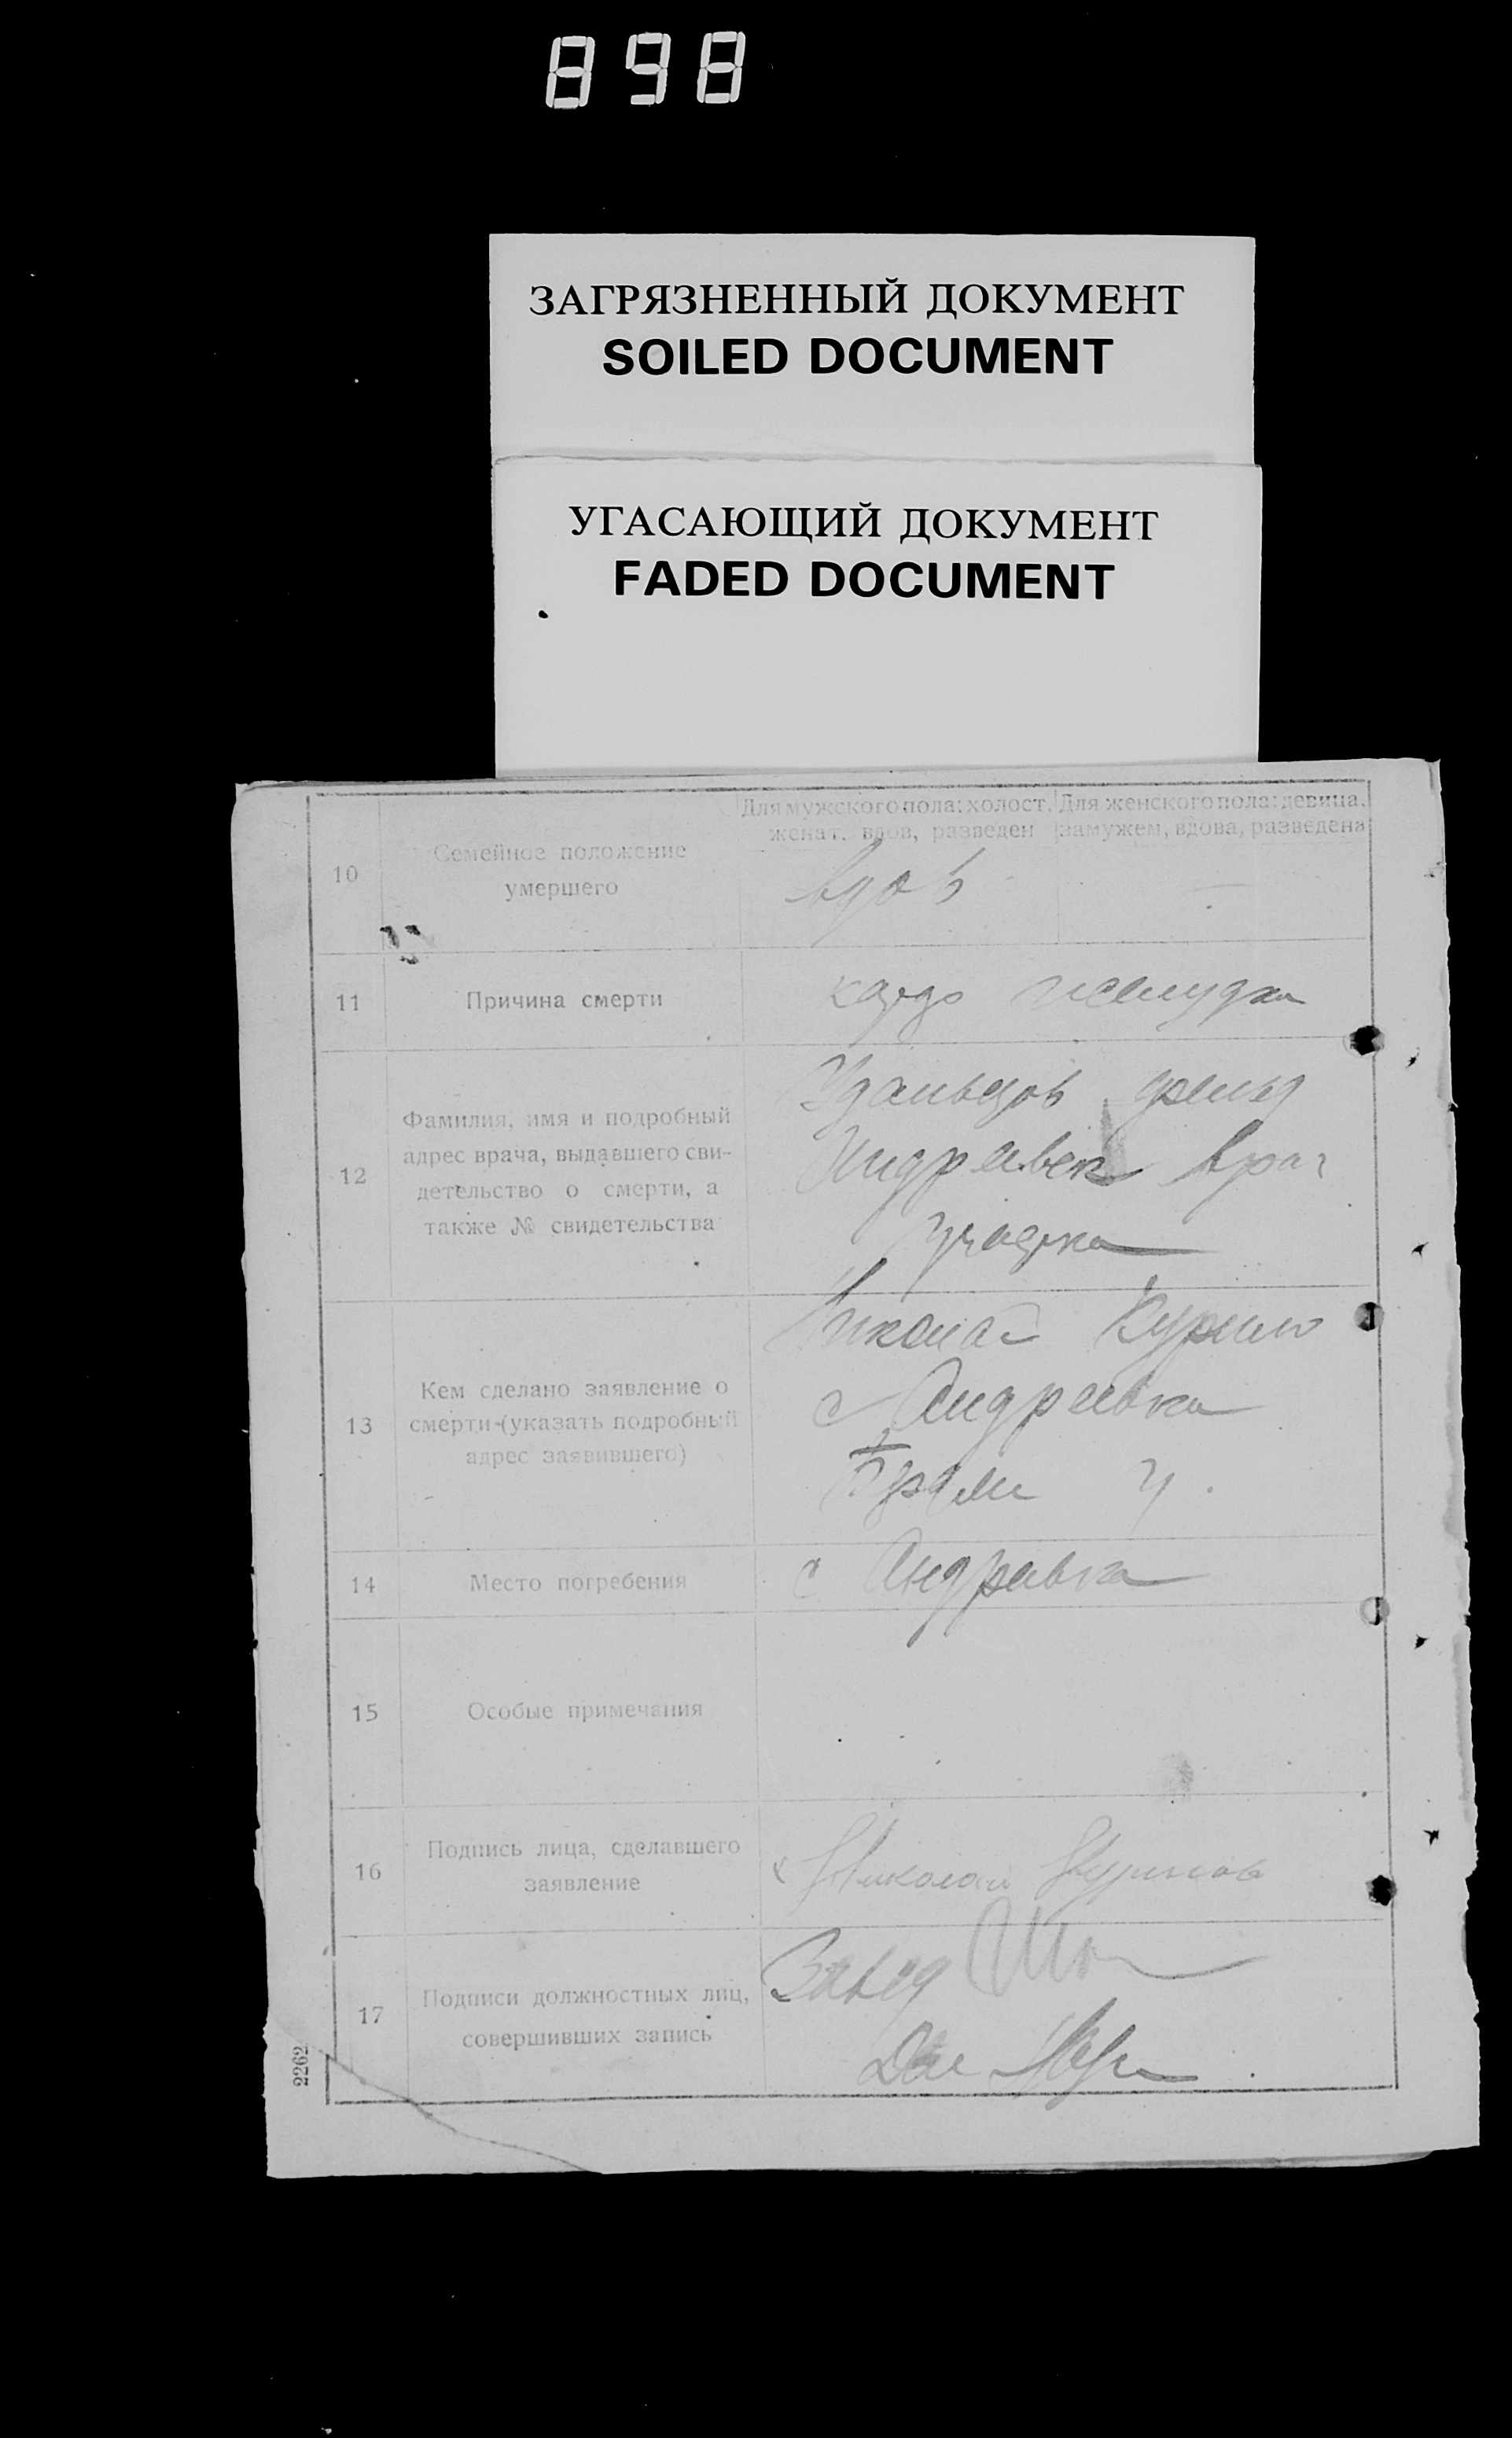 898
ЗАГРЯЗНЕННЫЙ ДОКУМЕНТ
SOILED DOCUMENT
УГАСАЮЩИЙ ДОКУМЕНТ
FADED DOCUMENT
10
Семейное положение
умершего
Для мужского пола: холост,
женат, вдов, разведен
Для женского пола: девица,
замужем, вдова, разведена
вдов
-
11
Причина смерти
желудка
12
Фамилия, имя и подробный
адрес врача, выдавшего сви-
детельство о смерти, а
также № свидетельства
Удальцов
врач
участка
13
Кем сделано заявление о
смерти (указать подробный
адрес заявившего)
Николай
с Андреевка
14
Место погребения
с Андреевка
15
Особые примечания
16
Подпись лица, сделавшего
заявление
Николай
17
Подписи должностных лиц,
совершивших запись
Завед
2262